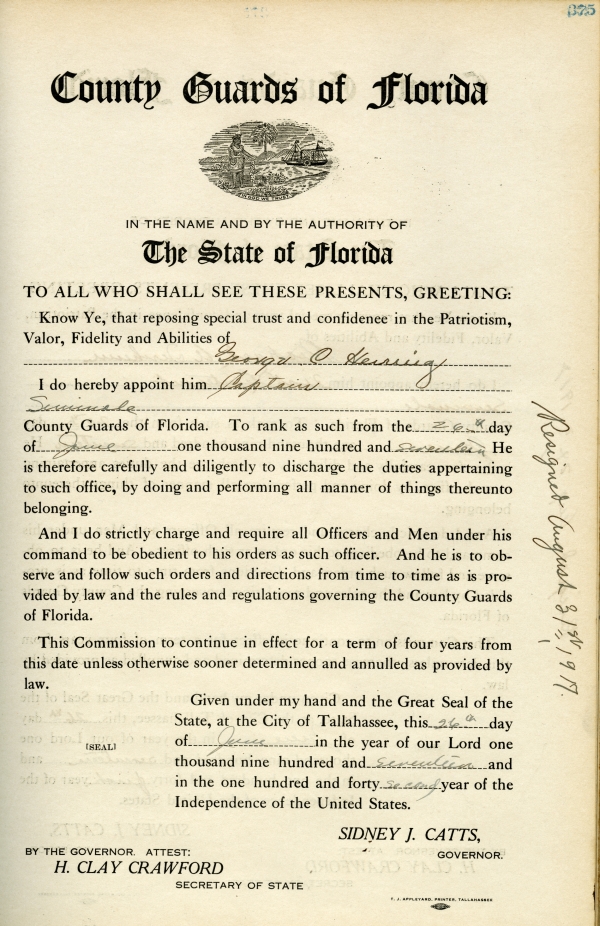 375
County Guards of Florida
IN GOD WE TRUST
IN THE NAME AND BY THE AUTHORITY OF
The State of Florida
TO ALL WHO SHALL SEE THESE PRESENTS, GREETING:
Know Ye, that reposing special trust and confidence in the Patriotism,
Valor, Fidelity and Abilities of
George O Herring
I do hereby appoint him Captain
Seminole
County Guards of Florida. To rank as such from the 26th day
of June one thousand nine hundred and seventeen He
is therefore carefully and diligently to discharge the duties appertaining
to such office, by doing and performing all manner of things thereunto
belonging.
And I do strictly charge and require all Officers and Men under his
command to be obedient to his orders as such officer. And he is to ob-
serve and follow such orders and directions from time to time as is pro-
vided by law and the rules and regulations governing the County Guards
of Florida.
This Commission to continue in effect for a term of four years from
this date unless otherwise sooner determined and annulled as provided by
law.
Given under my hand and the Great Seal of the
State, at the City of Tallahassee, this 26th day
[SEAL] of June in the year of our Lord one
thousand nine hundred and seventeen and
in the one hundred and forty second year of the
Independence of the United States.
SIDNEY J. CATTS,
GOVERNOR.
BY THE GOVERNOR. ATTEST:
H. CLAY CRAWFORD
SECRETARY OF STATE
T. J. APPLEYARD, PRINTER, TALLAHASSEE
Resigned August 31st, 1917.